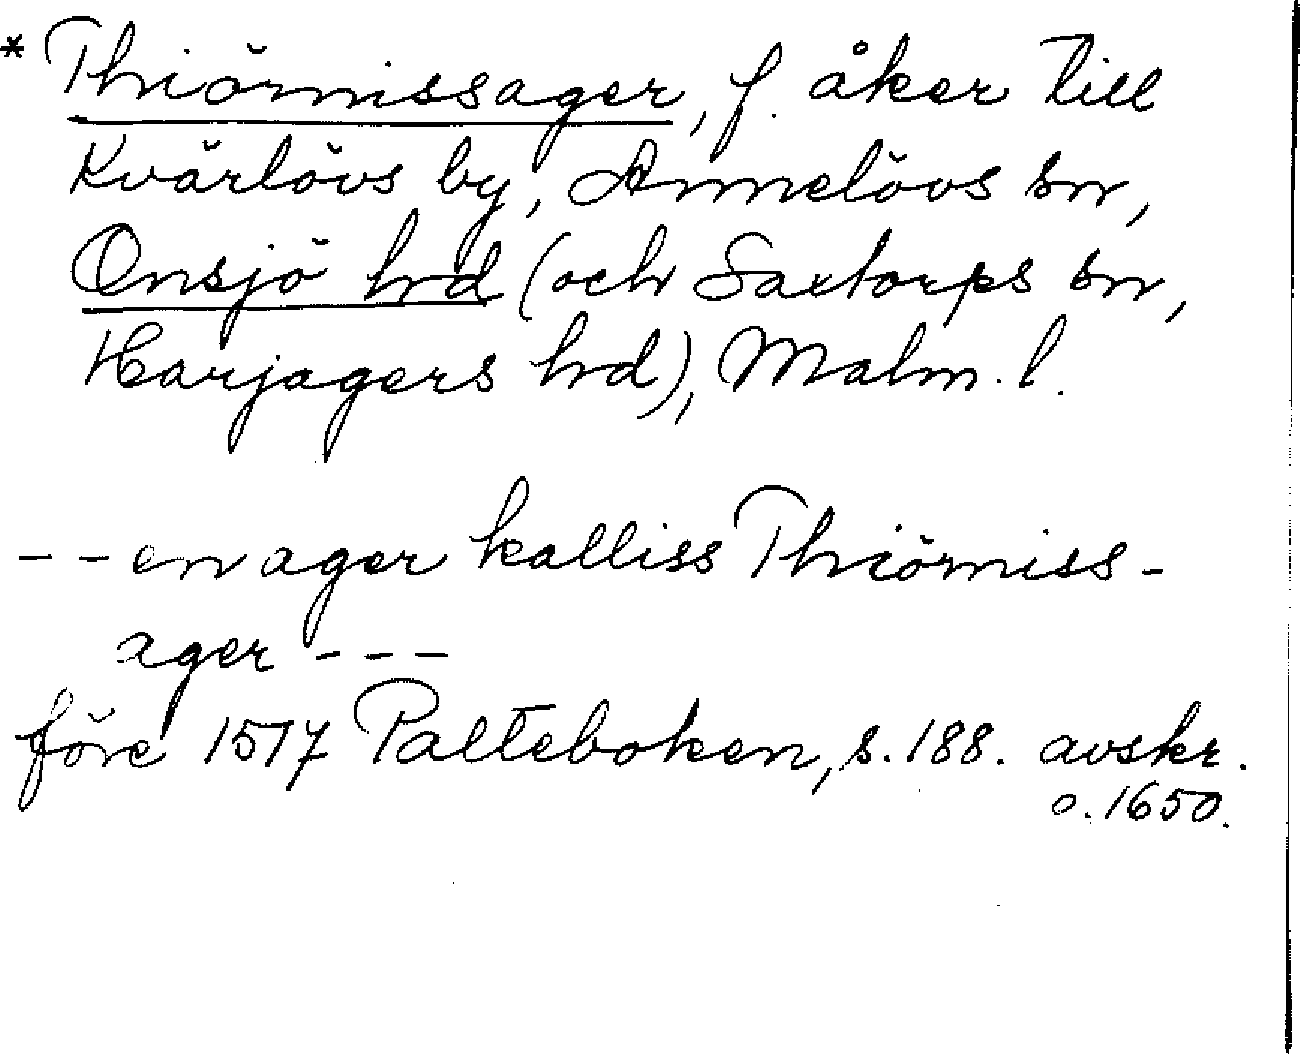 * Thiörnissager, f. åker till
Kvärlövs by, Annelövs sn,
Onsjö hrd (och Saxtorps sn,
Harjagers hrd), Malm. l.
- - en ager kalliss Thiörniss-
ager - - -
före 1517 Palteboken, s. 188. avskr.
o. 1650.